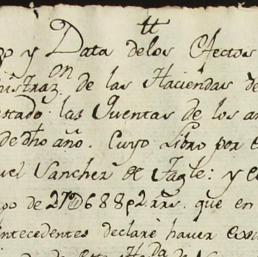 tt
o y Data delos Efectos
nistraz.on de las Haciendas de
estado. las Quentas de los a
de dho año. Cuyo Libro por e
uel Sanchez de Tagle: y e
go de 27D688p2rrs. que en
ntecedentes declaré haver